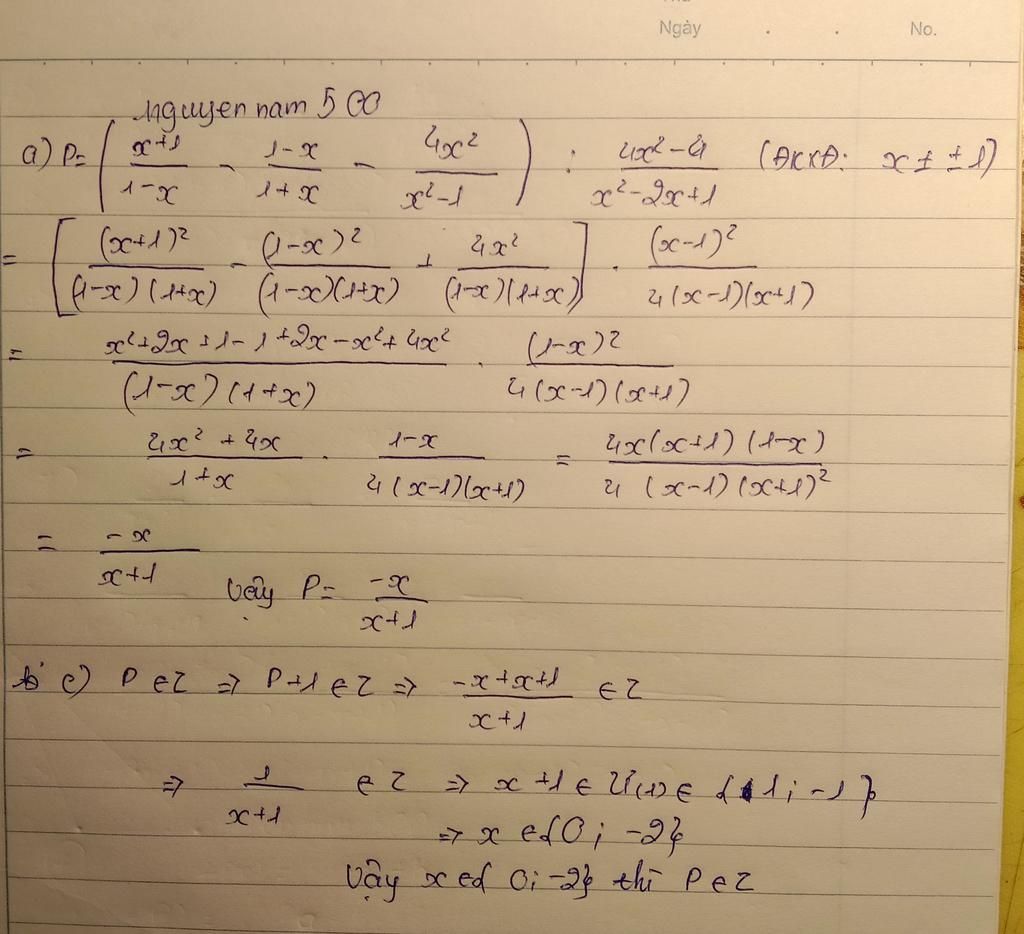 Thứ
Ngày . . No.
nguyen nam 500
a) P= ( x+1/1-x - 1-x/1+x - 4x²/x²-1 ) : 4x²-4/x²-2x+1 (ĐKXĐ: x ± ±1)
= [ (x+1)²/(1-x)(1+x) - (1-x)²/(1-x)(1+x) + 4x²/(1-x)(1+x) ] . (x-1)²/4(x-1)(x+1)
= x²+2x+1-1+2x-x²+4x²/(1-x)(1+x) . (1-x)²/4(x-1)(x+1)
= 4x²+4x/1+x . 1-x/4(x-1)(x+1) = 4x(x+1)(1-x)/4(x-1)(x+1)²
= -x/x+1 Vậy P= -x/x+1
c) P ∈ Z => P+1 ∈ Z => -x+x+1/x+1 ∈ Z
=> 1/x+1 ∈ Z => x+1 ∈ Ư(1) ∈ {1; -1}
=> x ∈ {0; -2}
Vậy x ∈ {0; -2} thì P ∈ Z